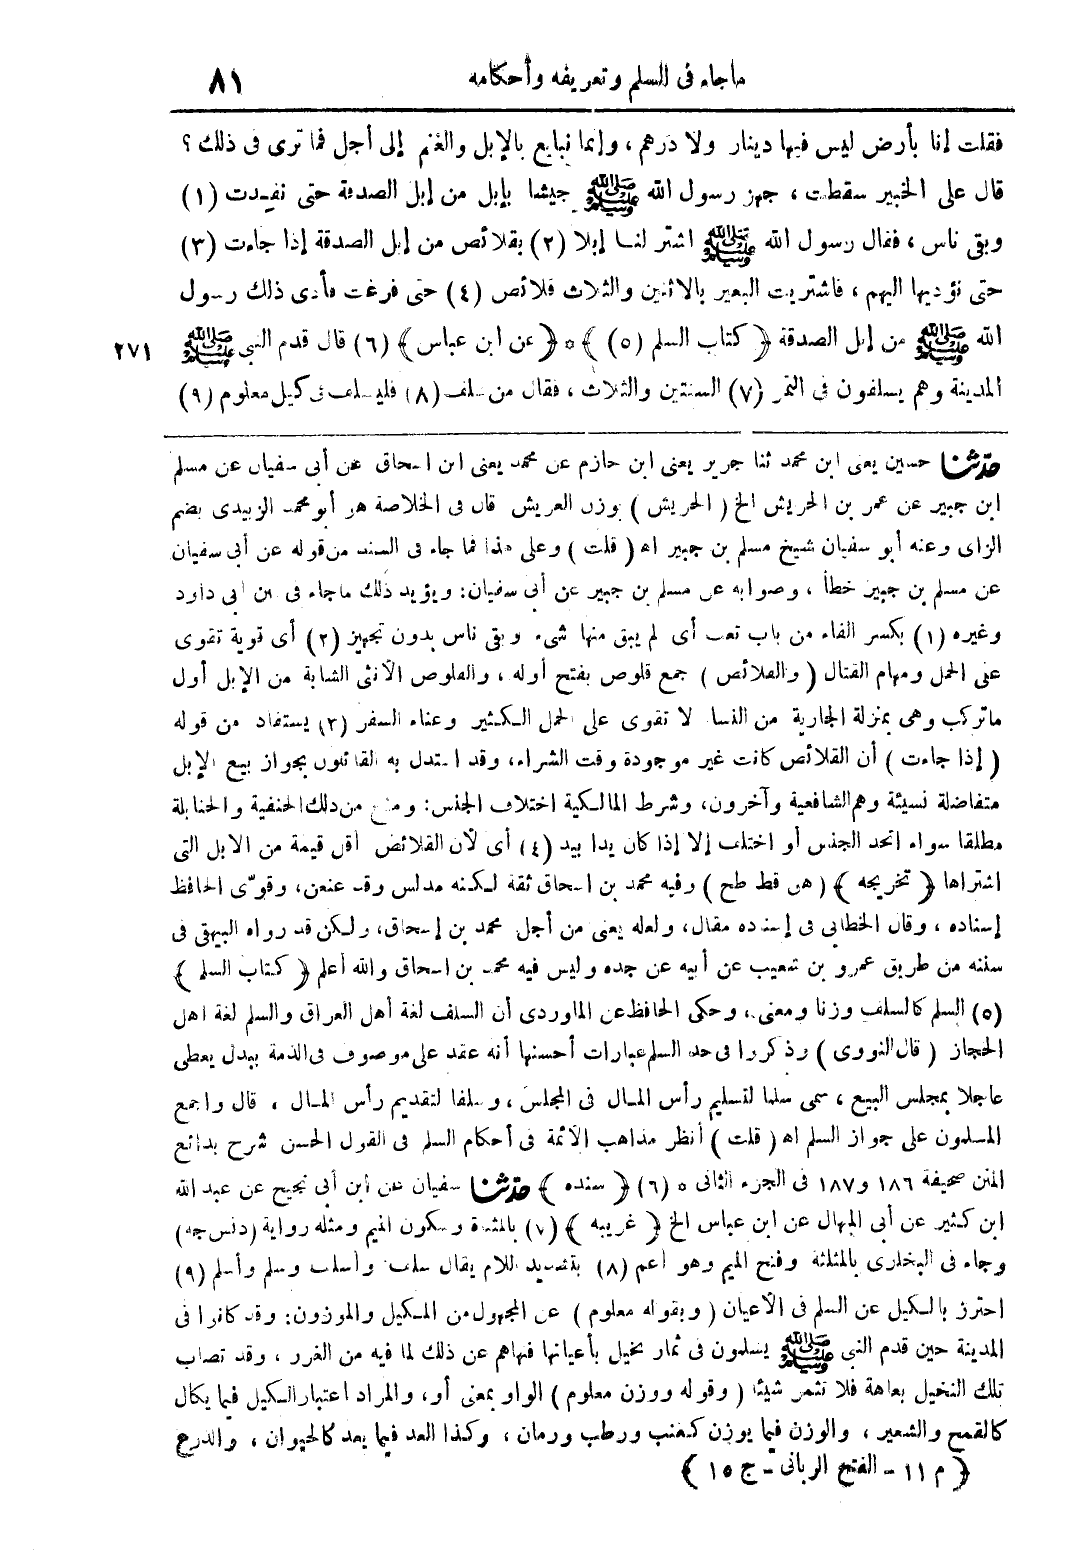 ما جاء فى السلم وتعريفه وأحكامه ٨١
فقلت إنا بأرض ليس فيها دينار ولا درهم ، وإنما نبايع بالإبل والغنم إلى أجل فما ترى فى ذلك ؟
قال على الخبير سقطت ، جهز رسول الله ﷺ جيشا بإبل من إبل الصدقة حتى نفدت (١)
وبقى ناس ، فقال رسول الله ﷺ اشتر لنا إبلا (٢) بقلائص من إبل الصدقة إذا جاءت (٣)
حتى نؤديها اليهم ، فاشتريت البعير بالاثنين والثلاث قلائص (٤) حتى فرغت فأدى ذلك رسول
الله ﷺ من إبل الصدقة ﴿ كتاب السلم (٥) ﴾ * ﴿ عن ابن عباس ﴾ (٦) قال قدم النبى ﷺ ٢٧١
المدينة وهم يسلفون فى التمر (٧) السنتين والثلاث ، فقال من سلف (٨) فليسلف فى كيل معلوم (٩)
حدثنا حسين يعنى ابن محمد ثنا جرير يعنى ابن حازم عن محمد يعنى ابن اسحاق عن أبى سفيان عن مسلم
ابن جبير عن عمر بن الحريش الخ ( الحريش ) بوزن العريش قال فى الخلاصة هو أبو محمد الزبيدى بضم
الزاى وعنه أبو سفيان شيخ مسلم بن جبير اه ( قلت ) وعلى هذا فما جاء فى السند من قوله عن أبى سفيان
عن مسلم بن جبير خطأ ، وصوابه عن مسلم بن جبير عن أبى سفيان: ويؤيد ذلك ما جاء فى سنن ابى داود
وغيره (١) بكسر الفاء من باب تعب أى لم يبق منها شىء وبقى ناس بدون تجهيز (٢) أى قوية تقوى
على الحمل ومهام القتال ( والقلائص ) جمع قلوص بفتح أوله ، والقلوص الأنثى الشابة من الإبل أول
ماتركب وهى بمنزلة الجارية من النساء لا تقوى على الحمل الكثير وعناء السفر (٣) يستفاد من قوله
( إذا جاءت ) أن القلائص كانت غير موجودة وقت الشراء، وقد استدل به القائلون بجواز بيع الإبل
متفاضلة نسيئة وهم الشافعية وآخرون، وشرط المالكية اختلاف الجنس: ومنع من ذلك الحنفية والحنابلة
مطلقا سواء اتحد الجنس أو اختلف إلا إذا كان يدا بيد (٤) أى لأن القلائص أقل قيمة من الابل التى
اشتراها ﴿ تخريجه ﴾ ( هق قط طح ) وفيه محمد بن اسحاق ثقة لكنه مدلس وقد عنعن، وقوّى الحافظ
إسناده ، وقال الخطابى فى إسناده مقال، ولعله يعنى من أجل محمد بن إسحاق، ولكن قد رواه البيهقى فى
سننه من طريق عمرو بن شعيب عن أبيه عن جده وليس فيه محمد بن اسحاق والله أعلم ﴿ كتاب السلم ﴾
(٥) السلم كالسلف وزنا ومعنى ، وحكى الحافظ عن الماوردى أن السلف لغة أهل العراق والسلم لغة اهل
الحجاز ( قال النووى ) وذكروا فى حد السلم عبارات أحسنها أنه عقد على موصوف فى الذمة ببدل يعطى
عاجلا بمجلس البيع ، سمى سلما لتسليم رأس المال فى المجلس ، وسلفا لتقديم رأس المال ، قال واجمع
المسلمون على جواز السلم اه ( قلت ) أنظر مذاهب الأئمة فى أحكام السلم فى القول الحسن شرح بدائع
المنن صحيفة ١٨٦ و ١٨٧ فى الجزء الثانى * (٦) ﴿ سنده ﴾ حدثنا سفيان عن ابن أبى نجيح عن عبد الله
ابن كثير عن أبى المنهال عن ابن عباس الخ ﴿ غريبه ﴾ (٧) بالمثناة وسكون الميم ومثله رواية (د نس جه)
وجاء فى البخارى بالمثلثة وفتح الميم وهو أعم (٨) بتشديد اللام يقال سلف وأسلف وسلم وأسلم (٩)
احترز بالكيل عن السلم فى الأعيان ( وبقوله معلوم ) عن المجهول من المكيل والموزون: وقد كانوا فى
المدينة حين قدم النبى ﷺ يسلمون فى ثمار نخيل بأعيانها فنهاهم عن ذلك لما فيه من الغرر ، وقد تصاب
تلك النخيل بعاهة فلا تثمر شيئا ( وقوله ووزن معلوم ) الواو بمعنى أو، والمراد اعتبار الكيل فيما يكال
كالقمح والشعير ، والوزن فيما يوزن كعنب ورطب ورمان ، وكذا العد فيما يعد كالحيوان ، والذرع
﴿ م ١١ - الفتح الربانى - ج ١٥ ﴾